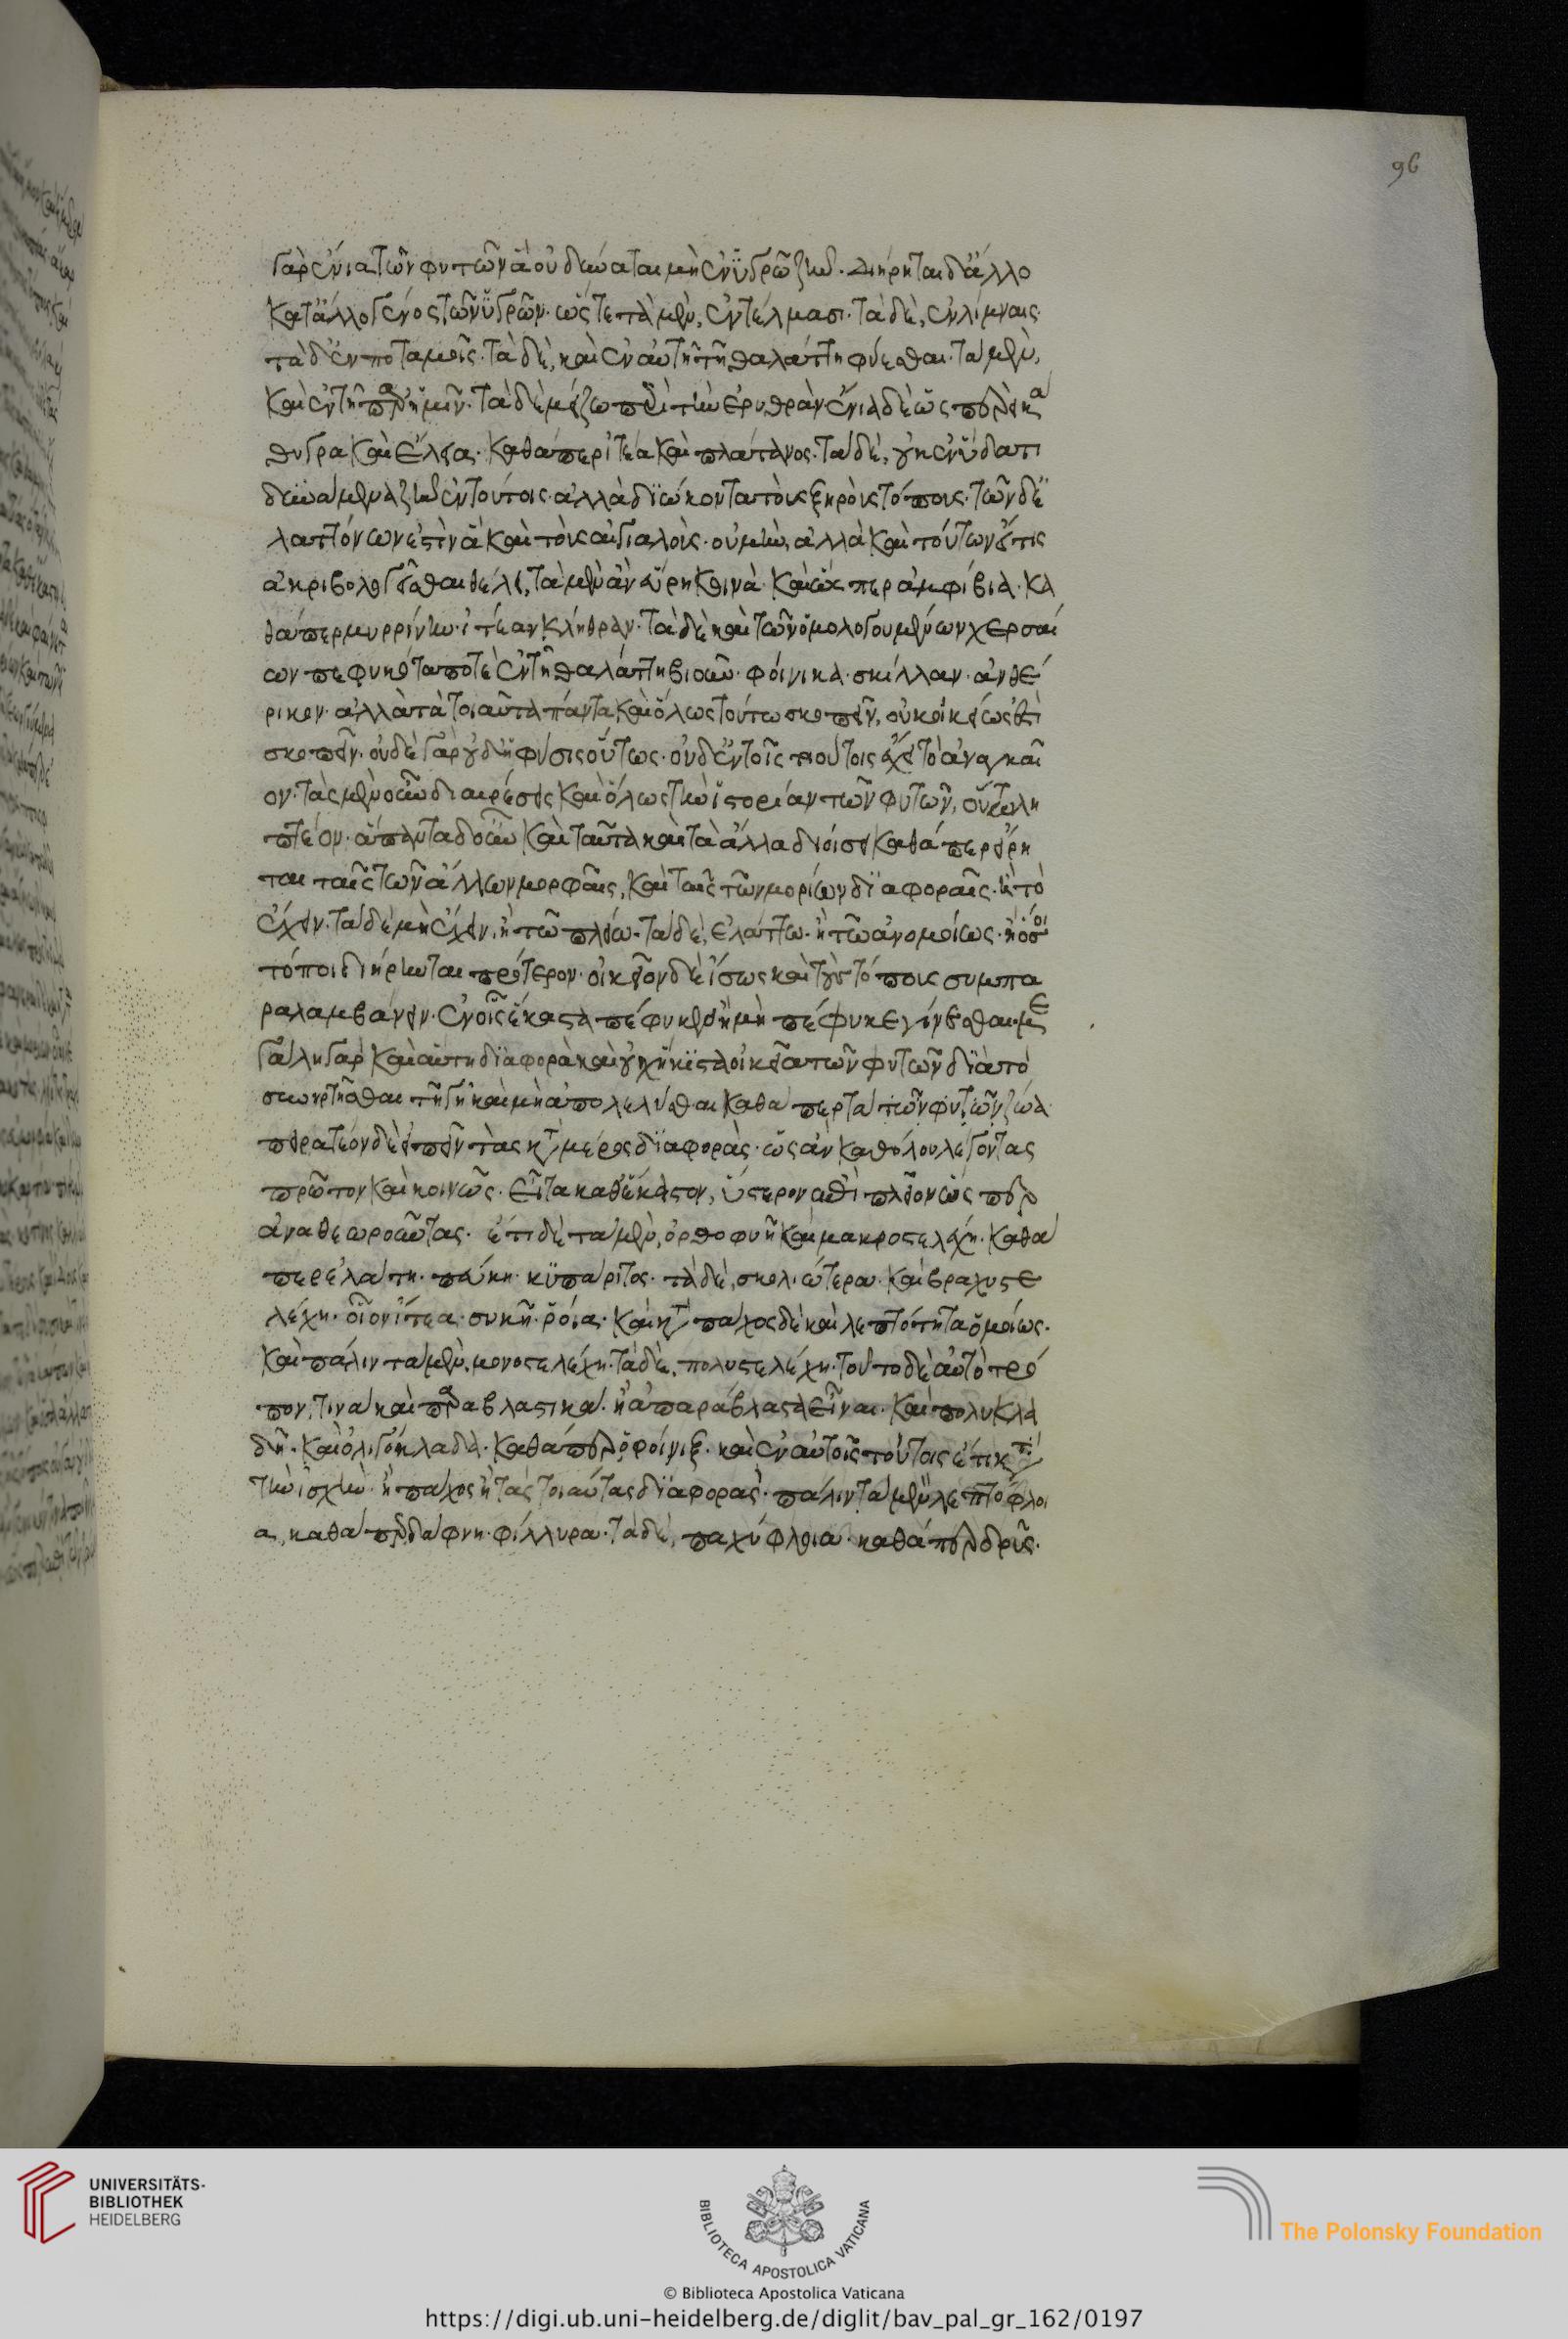 96
γὰρ ἔνια τῶν φυτῶν ἃ οὐ δύναται μὴ ἐν ὑδρῶ ζῆν. διήρηται δ' ἄλλο
κατ' ἄλλο γένος τῶν ὑδρῶν. ὥστε τὰ μὲν, ἐν τέλμασι. τὰ δὲ, ἐν λίμναις.
τὰ δ' ἐν ποταμοῖς. τὰ δὲ, καὶ ἐν αὐτῆ τῆ θαλάττη φύεσθαι. τὰ μὲν,
καὶ ἐν τῆ παρ' ἡμῖν. τὰ δὲ μείζω περὶ τὴν ἐρυθρὰν ἔνια δὲ ὥσπερεὶ κά
θυγρα καὶ ἕλεια. καθάπερ ἰτέα καὶ πλάτανος. τὰ δὲ, οὐκ ἐν ὕδατι
δυνάμενα ζῆν ἐν τούτοις. ἀλλὰ διώκοντα τοὺς ξηροὺς τόπους. τῶν δ' ἐ
λαττόνων ἐστὶν ἃ καὶ τοὺς αἰγιαλοὺς. οὐ μὴν, ἀλλὰ καὶ τούτων εἴ τις
ἀκριβολογεῖσθαι θέλει, τὰ μὲν ἂν εὕρη κοινὰ. καὶ ὥσπερ ἀμφίβια. κα
θάπερ μυρρίνην. ἰτέαν κλήθραν. τὰ δὲ καὶ τῶν ὁμολογουμένων χερσαί
ων πεφυκότα ποτὲ ἐν τῆ θαλάττη βιοῦν. φοίνικα. σκίλλαν. ἀνθέ
ρικον. ἀλλὰ τὰ τοιαῦτα πάντα καὶ ὅλως τούτω σκοπεῖν, οὐκ οἰκείως ἐστὶ
σκοπεῖν. οὐδὲ γὰρ οὐδ' ἡ φύσις οὕτως. οὐδ' ἐν τοῖς τοιούτοις ἔχει τὸ ἀναγκαῖ
ον. τὰς μὲν οὖν διαιρέσεις καὶ ὅλως τὴν ἱστορίαν τῶν φυτῶν, οὕτω λη
πτέον. ἅπαντα δ' οὖν καὶ ταῦτα καὶ τὰ ἄλλα διοίσει καθάπερ εἴρη
ται ταῖς τῶν ἄλλων μορφαῖς, καὶ ταῖς τῶν μορίων διαφοραῖς. ἢ τὸ
ἔχειν. τὰ δὲ μὴ ἔχειν. ἢ τῶ πλείω. τὰ δὲ, ἐλάττω. ἢ τῶ ἀνομοίως. ἢ ὅσοι
τόποι διήρηνται πρότερον. οἰκεῖον δὲ ἴσως καὶ τοὺς τόπους συμπα
ραλαμβάνειν. ἐν οἷς ἕκαστα πέφυκεν ἢ μὴ πέφυκε γίνεσθαι. με
γάλη γὰρ καὶ αὕτη διαφορὰ καὶ οὐχ ἥκιστα οἰκεῖα τῶν φυτῶν διὰ τὸ
συνηρτῆσθαι τῆ γῆ καὶ μὴ ἀπολελύσθαι καθάπερ τὰ τῶν φυτῶν ζῶα
πειρατέον δὲ εἰπεῖν τὰς κατὰ μέρος διαφορὰς. ὡς ἂν καθόλου λέγοντας
πρῶτον καὶ κοινῶς. εἶτα καθ' ἕκαστον, ὕστερον ἐπὶ πλεῖον ὥσπερ
ἀναθεωροῦντας. ἐστὶ δὲ τὰ μὲν, ὀρθοφυῆ καὶ μακροστελέχη. καθά
περ ἐλάτη. πεύκη. κυπάριττος. τὰ δὲ, σκολιώτερα. καὶ βραχυστε
λέχη. οἷον ἰτέα. συκῆ. ῥόια. καὶ κατὰ πάχος δὲ καὶ λεπτότητα ὁμοίως.
καὶ πάλιν τὰ μὲν, μονοστελέχη. τὰ δὲ, πολυστελέχη. τοῦτο δὲ αὐτὸ τρό
πον τινὰ καὶ παραβλαστικά. ἢ ἀπαράβλαστα εἶναι. καὶ πολυκλα
δῆ. καὶ ὀλιγόκλαδα. καθάπερ ὁ φοίνιξ. καὶ ἐν αὐτοῖς τούτοις ἔτι κατὰ
τὴν ἰσχὺν. ἢ πάχος ἢ τὰς τοιαύτας διαφορὰς. πάλιν τὰ μὲν λεπτόφλοι
α, καθάπερ δάφνη. φίλλυρα. τὰ δὲ, παχύφλοια. καθάπερ δρῦς.
UNIVERSITÄTS-
BIBLIOTHEK
HEIDELBERG
BIBLIOTECA APOSTOLICA VATICANA
The Polonsky Foundation
© Biblioteca Apostolica Vaticana
https://digi.ub.uni-heidelberg.de/diglit/bav_pal_gr_162/0197